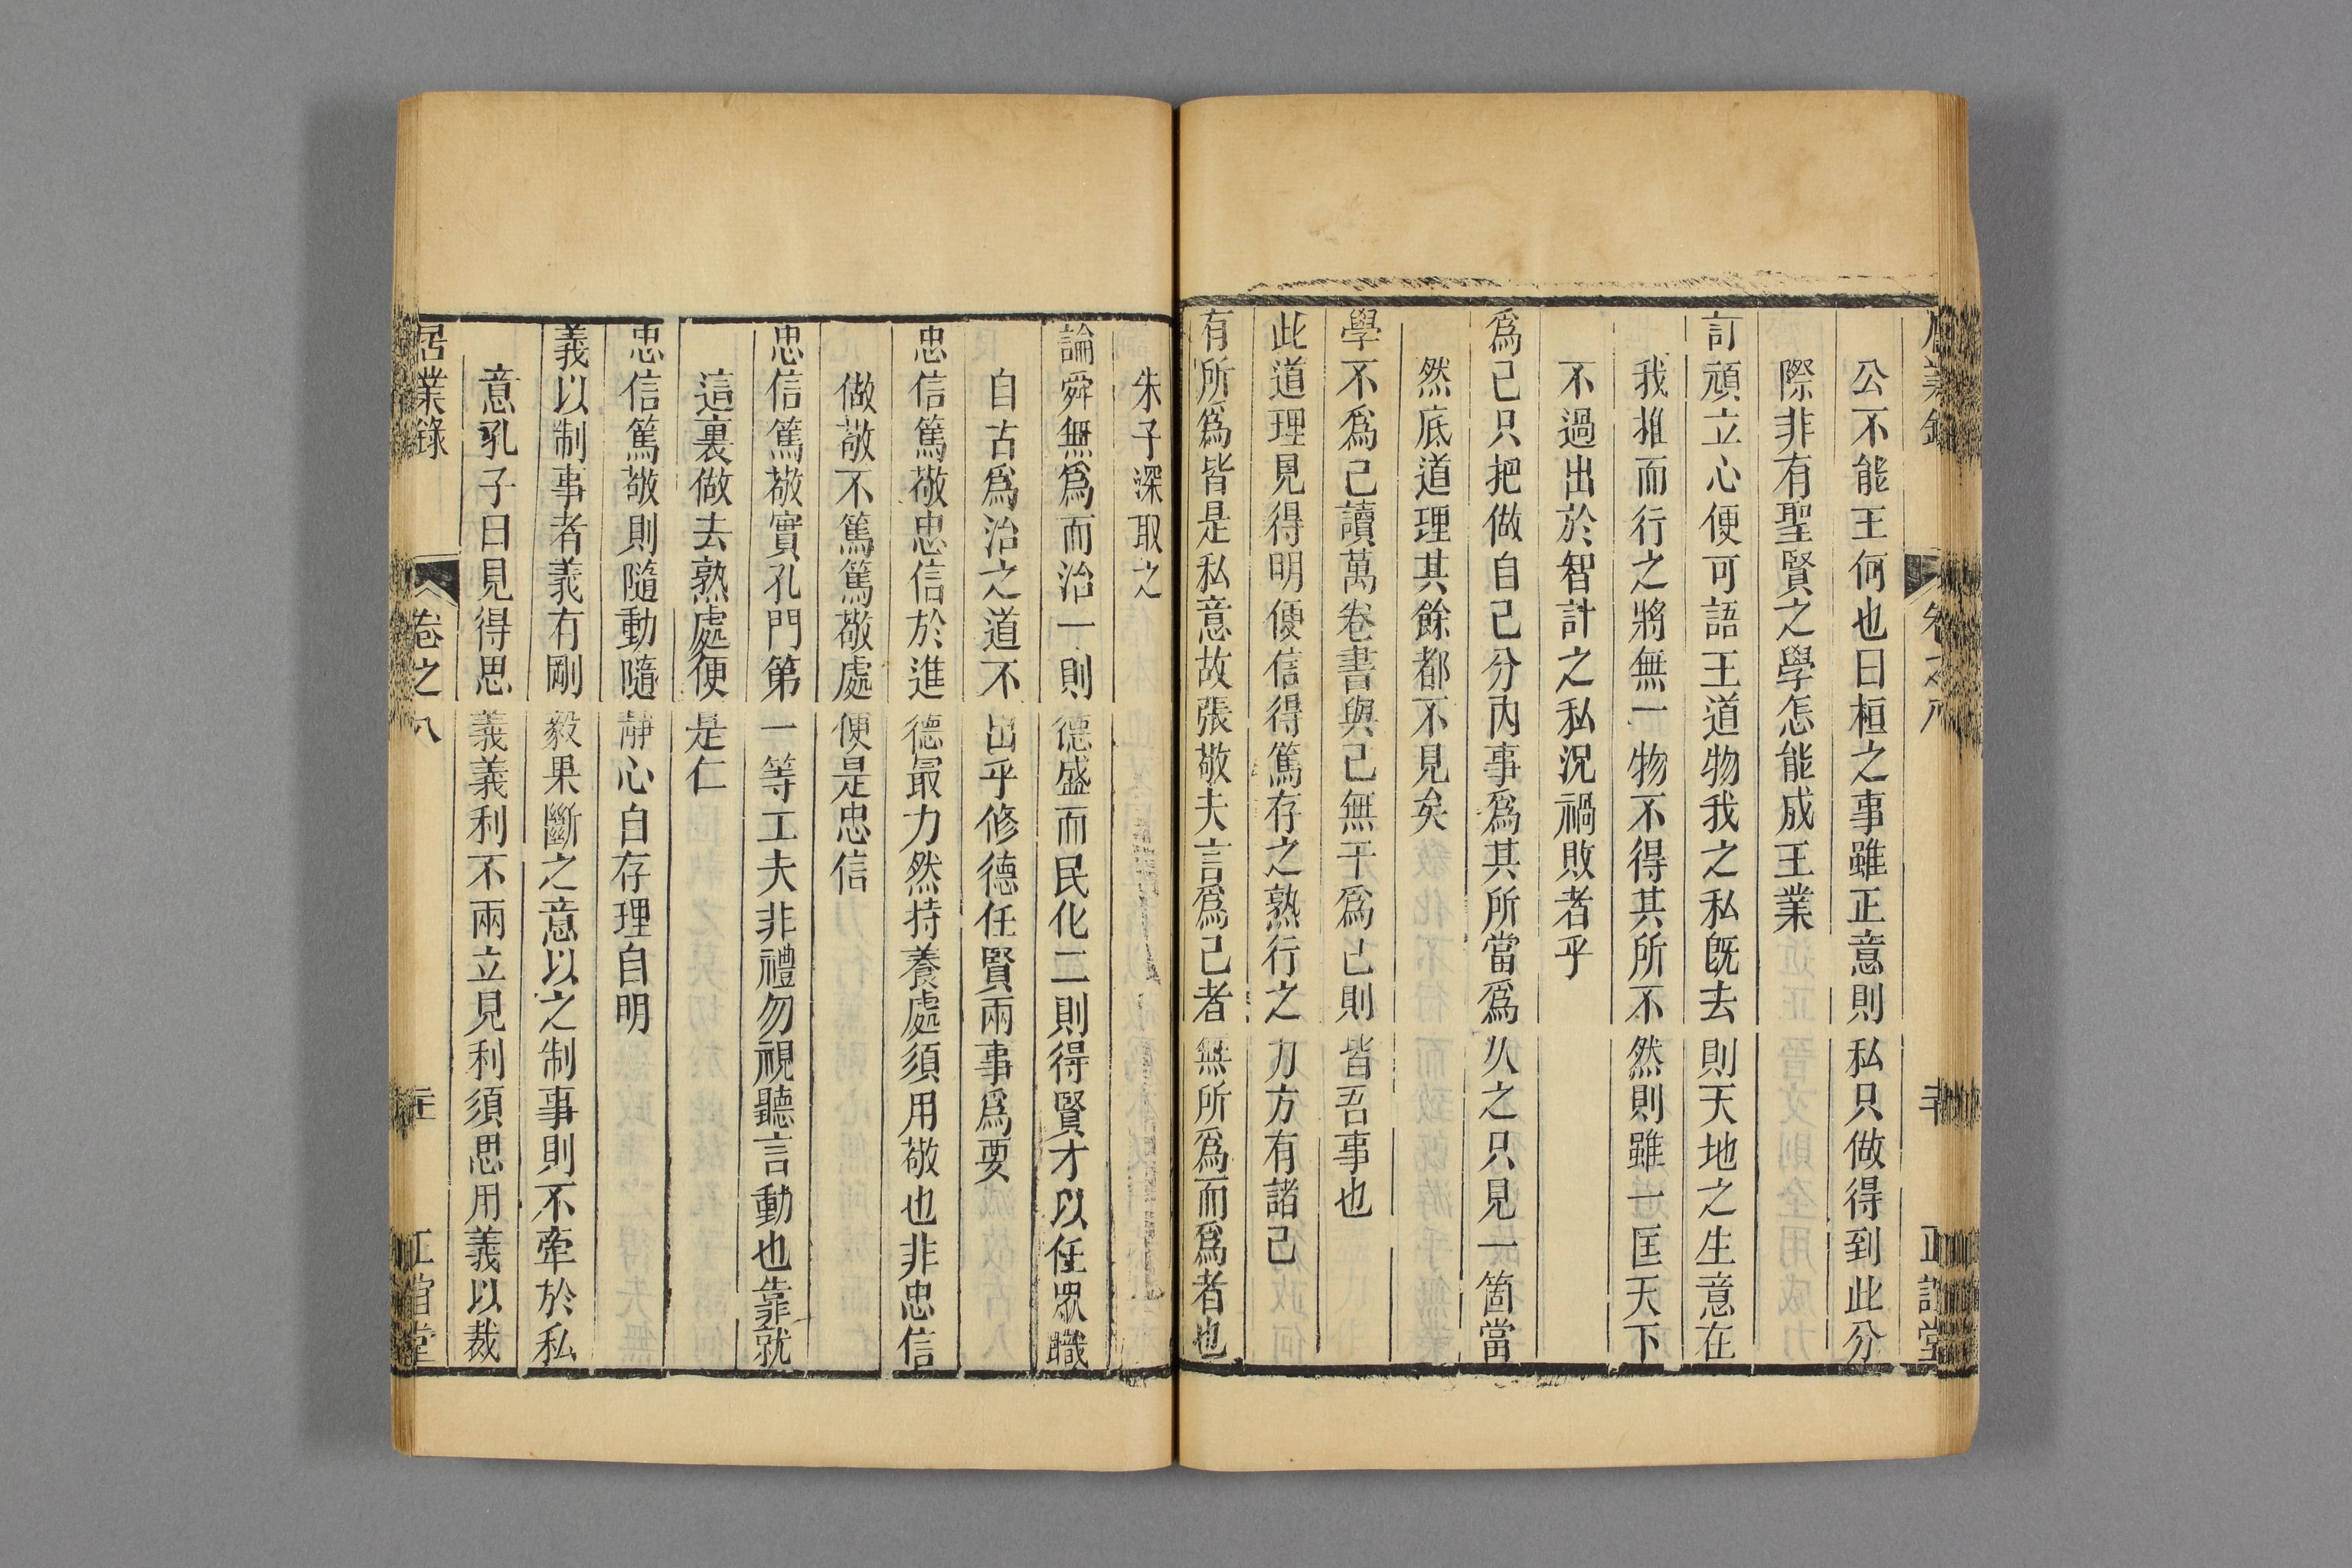 居業錄 卷之八 正誼堂
公不能王何也曰桓之事雖正意則私只做得到此分
際非有聖賢之學怎能成王業
訂頑立心便可語王道物我之私既去則天地之生意在
我推而行之將無一物不得其所不然則雖一匡天下
不過出於智計之私況禍敗者乎
爲己只把做自己分內事爲其所當爲久之只見一箇當
然底道理其餘都不見矣
學不爲己讀萬卷書與己無干爲己則皆吾事也
此道理見得明便信得篤存之熟行之力方有諸己
有所爲皆是私意故張敬夫言爲己者無所爲而爲者也
朱子深取之
論舜無爲而治一則德盛而民化二則得賢才以任眾職
自古爲治之道不出乎修德任賢兩事爲要
忠信篤敬忠信於進德最力然持養處須用敬也非忠信
做敬不篤篤敬處便是忠信
忠信篤敬實孔門第一等工夫非禮勿視聽言動也靠就
這裏做去熟處便是仁
忠信篤敬則隨動隨靜心自存理自明
義以制事者義有剛毅果斷之意以之制事則不牽於私
意孔子曰見得思義義利不兩立見利須思用義以裁
居業錄 卷之八 正誼堂